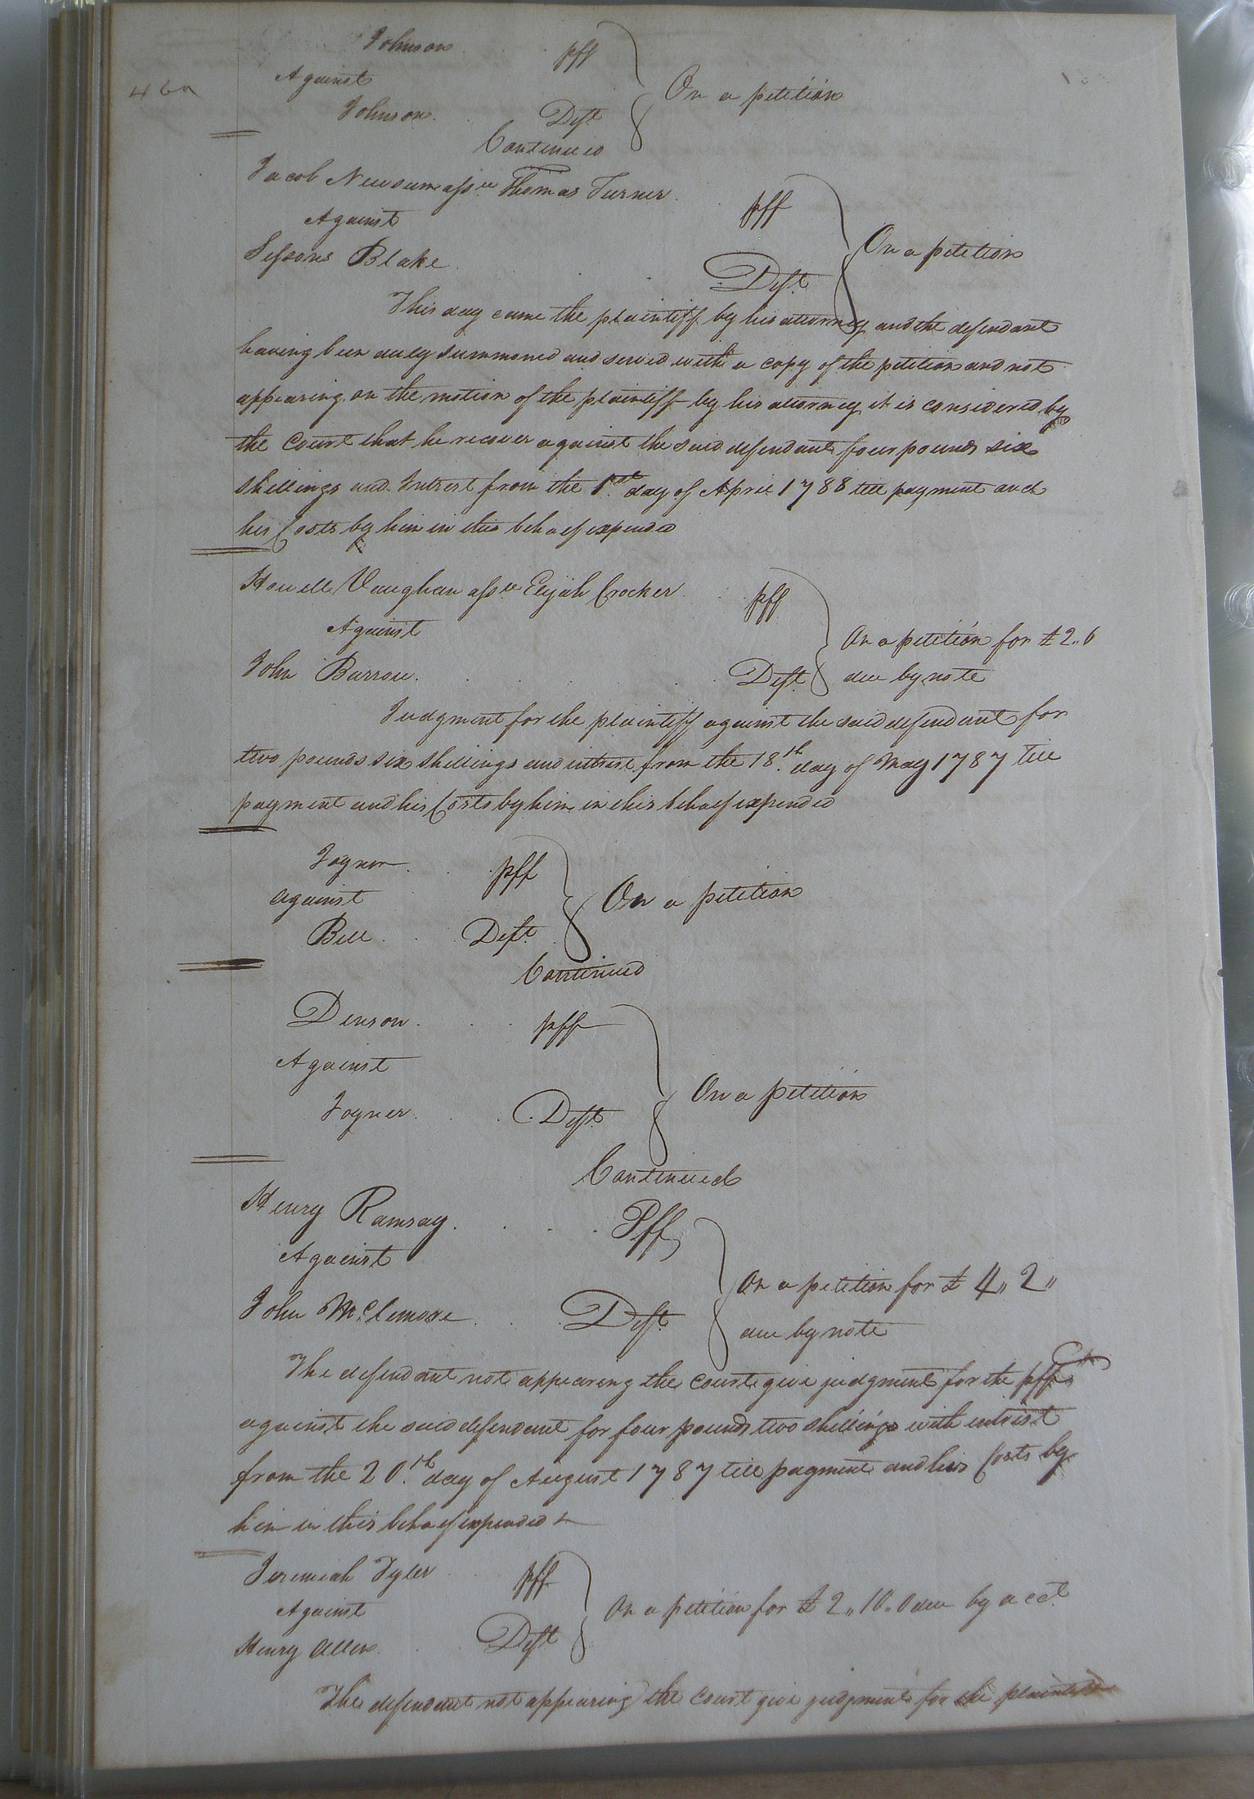 Johnson pff
46a
Against
On a petition
Johnson Deft
Continued
Jacob Newsum assee Thomas Turner pff
Against
On a petition
Sessoms Blake Deft
This day came the plaintiff by his attorney and the defendant
having been duly summoned and served with a copy of the petition and not
appearing on the motion of the plaintiff by his attorney it is considered by
the Court that he recover against the said defendant four pounds six
shillings and Intrest from the 1st day of April 1788 till payment and
his Costs by him in this behalf expended
Howell Vaughan assee Elijah Crocker pff
Against
On a petition for £2..6
John Barrow Deft
due by note
Judgment for the plaintiff against the said defendant for
two pounds six shillings and intrest from the 18th day of May 1787 till
payment and his Costs by him in this behalf expended
Joyner pff
against
On a petition
Bell Deft
Continued
Denson pff
Against
On a petition
Joyner Deft
Continued
Henry Ramsay Pff
Against
On a petition for £ 4,, 2,,
John McLemore Deft
due by note
The defendant not appearing the court give judgment for the pff
against the said defendant for four pounds two shillings with intrist
from the 20th day of August 1787 till payment and his Costs by
him in this behalf expended
Jeremiah Tyler pff
Against
On a petition for £ 2,, 10.. 0 due by acct
Henry Allen Deft
The defendant not appearing the court give judgment for the plaintiff